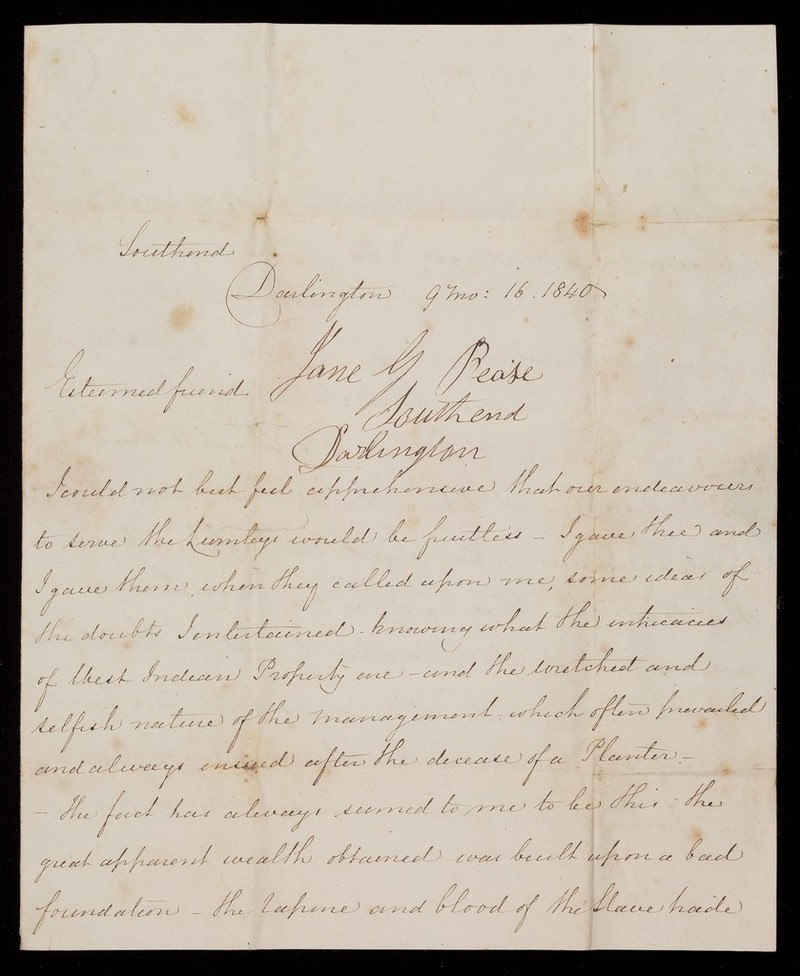 Southend
Darlington 9 mo: 16. 1840
Esteemed friend
Jane G Pease
Southend
Darlington
I could not but feel apprehensive that our endeavours
to serve the Lumleys would be fruitless – I gave thee and
I gave them, when they called upon me, some ideas of
the doubts I entertained – knowing what the intricacies
of West Indian Property are – and the wretched and
selfish nature of the management – which often prevailed
and always ensued after the decease of a Planter –
– The fact has always seemed to me to be this – the
great apparent wealth obtained was built upon a bad
foundation – the rapine and blood of the Slave trade